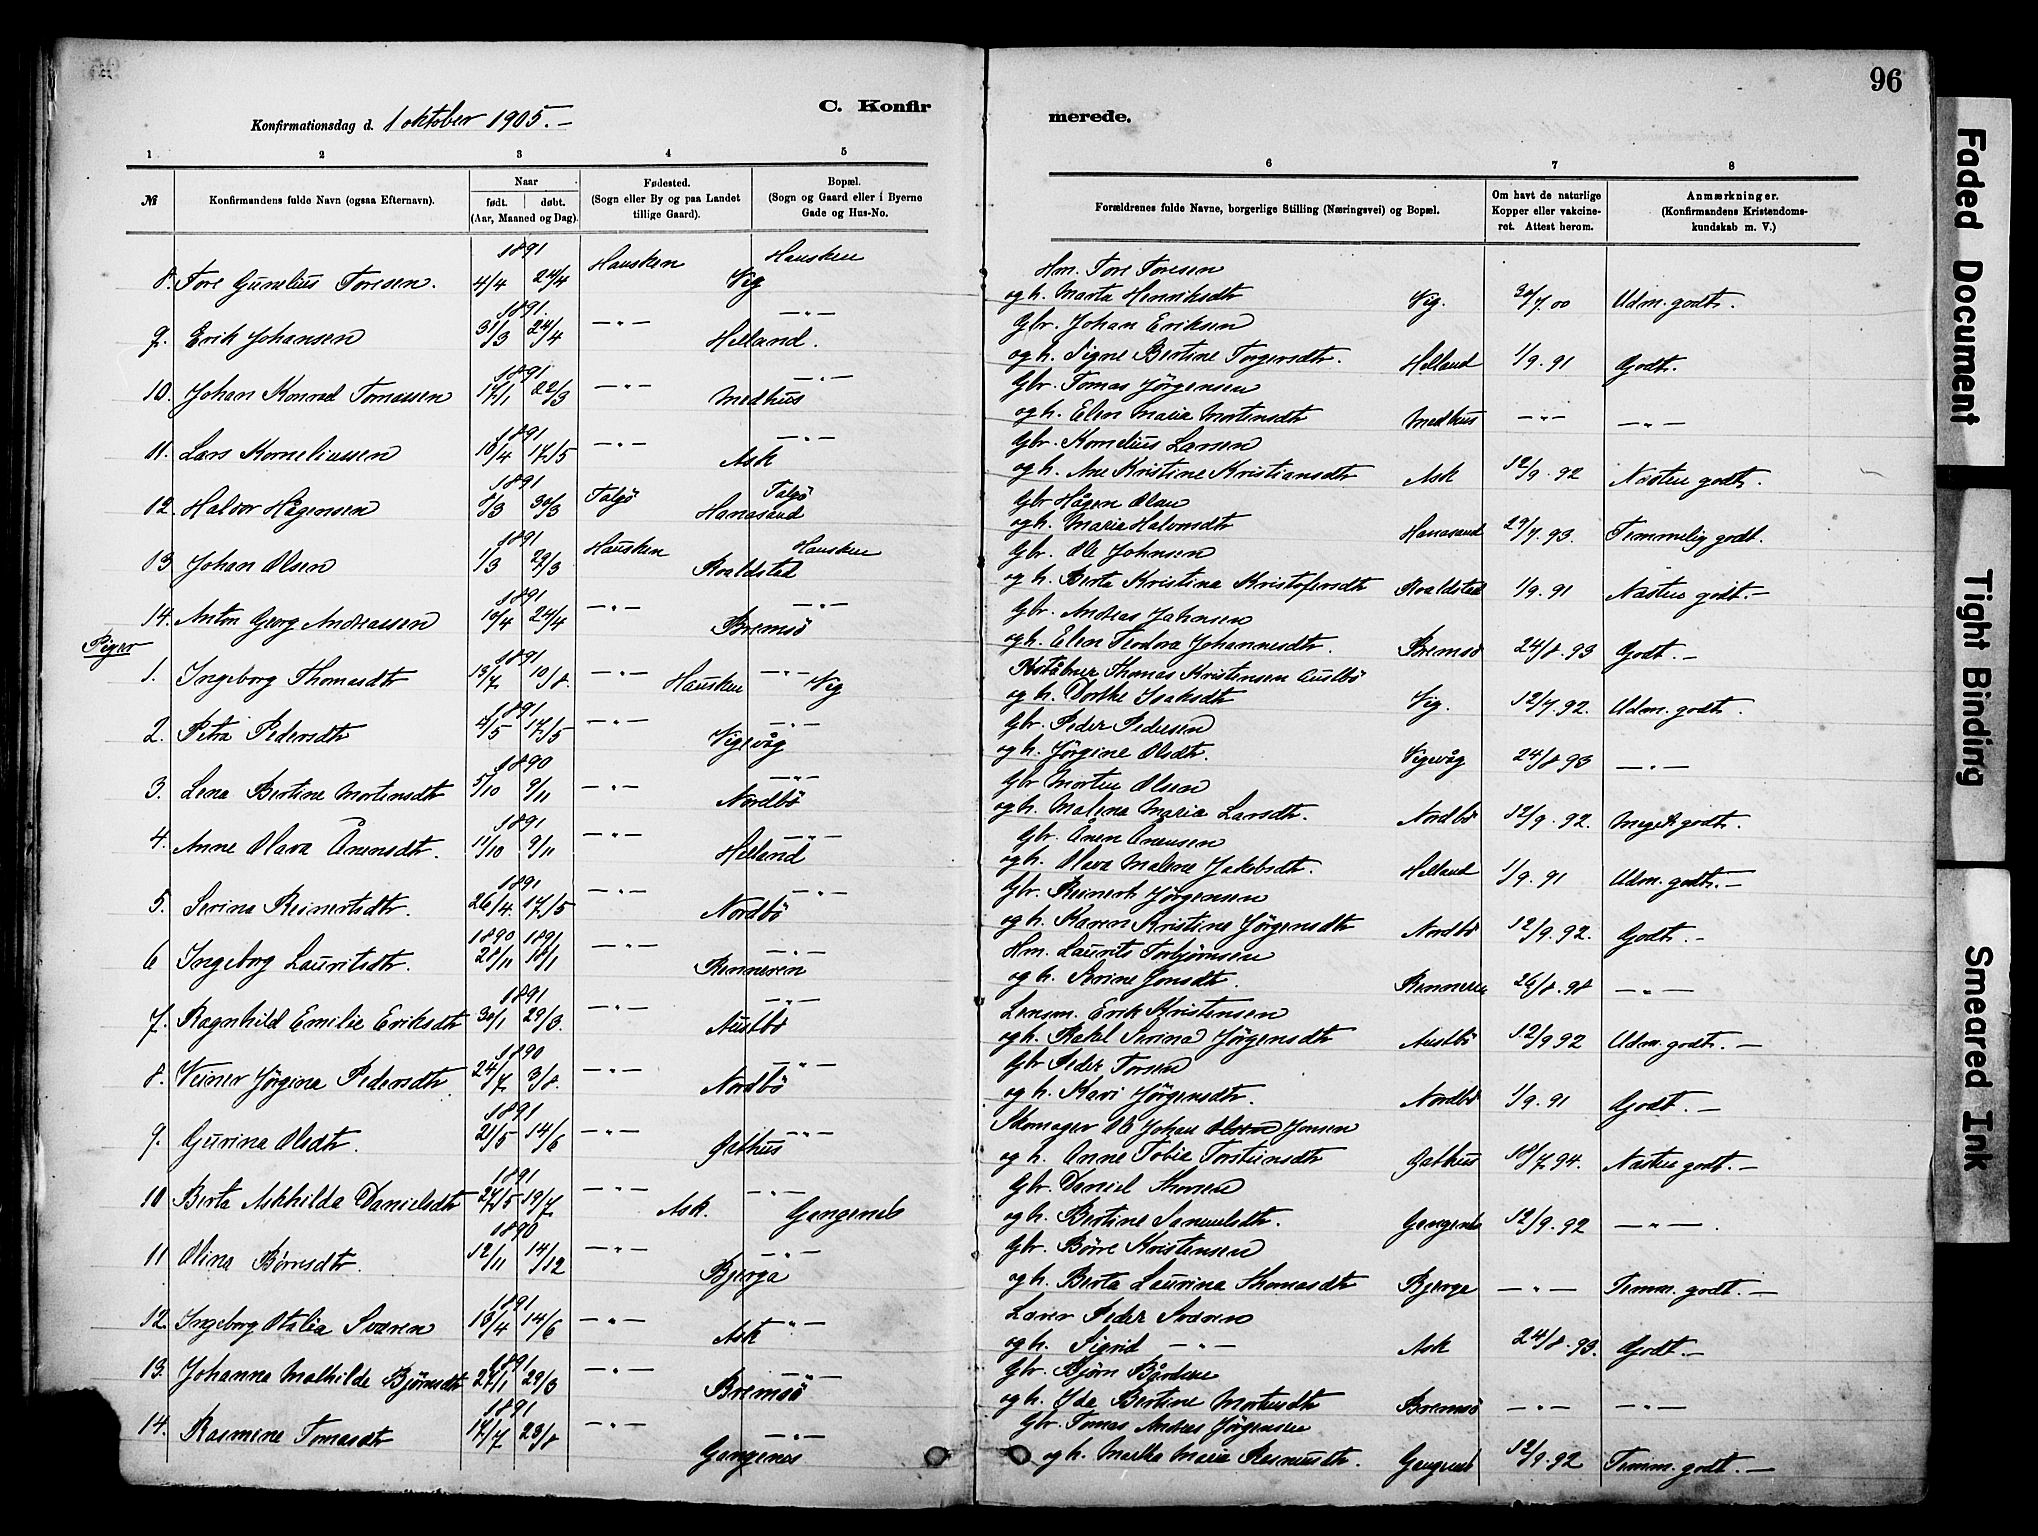 96
C. Konfirmerede.
Konfirmationsdag d. 1 oktober 1905.-
1 2 3 4 5 6 7 8
№ Konfirmandens fulde Navn (ogsaa Efternavn). Naar født. døbt. (Aar, Maaned og Dag). Fødested. (Sogn eller By og paa Landet tillige Gaard). Bopæl. (Sogn og Gaard eller i Byerne Gade og Hus-No. Forældrenes fulde Navne, borgerlige Stilling (Næringsvei) og Bopæl. Om havt de naturlige Kopper eller vakcineret. Attest herom. Anmærkninger. (Konfirmandens Kristendomskundskab m. V.)
1891 Hausken Hausken Hm. Tore Toresen
8. Tore Gunelius Toresen. 4/4 24/4 Vig og h. Marta Henriksdtr Vig. 30/7 00 Udm. godt.
1891. —„— —„— Gbr. Johan Eriksen
9. Erik Johansen 31/3 24/4 Helland. og h. Signe Bertine Torgersdtr. Helland 1/9. 91 Godt.
1891 —„— —„— Gbr. Tomas Jörgensen
10. Johan Konrad Tomassen 17/1 22/3 Medhus og h. Elen Maria Mortensdtr Medhus —„— —„—
1891 —„— —„— Gbr. Kornelius Larsen
11. Lars Korneliussen 10/4 17/5 Ask og h. Ane Kristine Kristiansdtr Ask 12/9. 92 Næsten godt.
1891 Talgö Talgö Gbr Hågen Olau
12. Halvor Hågensen 8/3 30/3 Hanasand og h. Maria Halvorsdtr Hanasand 29/7. 93. Temmelig godt.
1891 Hausken Hausken Gbr. Ole Johnsen
13 Johan Olsen 1/3 29/3 Roaldstad og h. Berta Kristina Kristofersdtr Roaldstad 1/9. 91 Næsten godt.-
1891 —„— —„— Gbr. Andreas Johnsen
14. Anton Georg Andreassen 10/4 24/4 Bremsö og h. Elen Teodora Johannesdtr. Bremsö 24/8. 93 Godt.-
Piger
1891 —„— —„— Thomas Kristensen Austbö
1. Ingeborg Thomasdtr 13/7 10/8. Hausken Vig og h. Dorthe Isaksdtr Vig. 12/7. 92. Udm. godt.
1891 —„— —„— Gbr. Peder Pedersen
2. Petra Pedersdtr 4/5 17/5 Vigevåg og h. Jörgine Olsdtr. Vigevåg 24/8 93 —„—
1890 —„— —„— Gbr Morten Olsen
3. Lena Bertine Mortensdtr 5/10 9/11 Nordbö og h. Malena Maria Larsdtr. Nordbö 12/9. 92. Meget godt.
1891 —„— —„— Gbr. Ånen Ånensen
4. Anne Olava Ånensdtr. 11/10 9/11 Helland og h. Olava Malene Jakobsdtr. Helland 1/9. 91 Udm. godt.-
1891 —„— —„— Gbr. Reinert Jörgensen
5. Serina Reinertsdtr. 26/4. 17/5 Nordbö og h. Karen Kristine Jörgensdtr Nordbö 12/9. 92. Godt.-
1890 1891 —„— —„— Hm. Laurits Torbjörnsen
6 Ingeborg Lauritsdtr. 28/11 18/1 Renneren og h. Serine Jonsdtr. Renneren 26/8. 98 —„—
1891 —„— —„— Lensm. Erik Kristensen
7. Ragnhild Emilie Eriksdtr 30/1 29/3. Austbö og h. Rakel Serina Jörgensdtr Austbö 12/9 92 Udm. godt.-
1890 —„— —„— Gbr Peder Torsen
8. Veiner Jörgina Pedersdtr 24/7 3/8. Nordbö og h. Kari Jörgensdtr. Nordbö 1/9. 91 Godt.-
1891 —„— —„— Skomager Ole Johan Olsen Jonsen
9. Gurina Olsdtr. 21/5 14/6 Galhus og h. Anne Tobia Torsteinsdtr Galhus 18/7. 94. Næsten godt.-
1891 —„— —„— Gbr. Daniel Thorsen
10 Berta Askhilda Danielsdtr 27/5 19/7 Ask. Gangenes og h. Bertine Samuelsdtr. Gangenes 12/9. 92 —„—.
1890 —„— —„— Gbr. Börre Kristensen
11 Olina Börresdtr. 12/11 14/12 Bjerga og h. Berta Laurina Thomasdtr Bjerga —„— Temm. godt.-
1891 —„— —„— Lærer Peder Sværen
12. Ingeborg Otalia Sværen 13/4 14/6 Ask og h. Sigrid —„— Ask 24/8. 93. Godt.-
1891 —„— —„— Gbr. Bjørn Bårdsen
13. Johanna Mathilde Bjørnsdtr 27/1 29/3 Bremsö og h. Ida Bertine Mortensdtr Bremsö —„— —„—
1891 —„— —„— Gbr. Tomas Andreas Jörgensen
14. Rasmine Tomasdtr 17/7 23/8 Gangenes og h. Martha Maria Rasmusdtr. Gangenes 12/9. 92 Temm. godt.-
Faded Document
Tight Binding
Smeared Ink